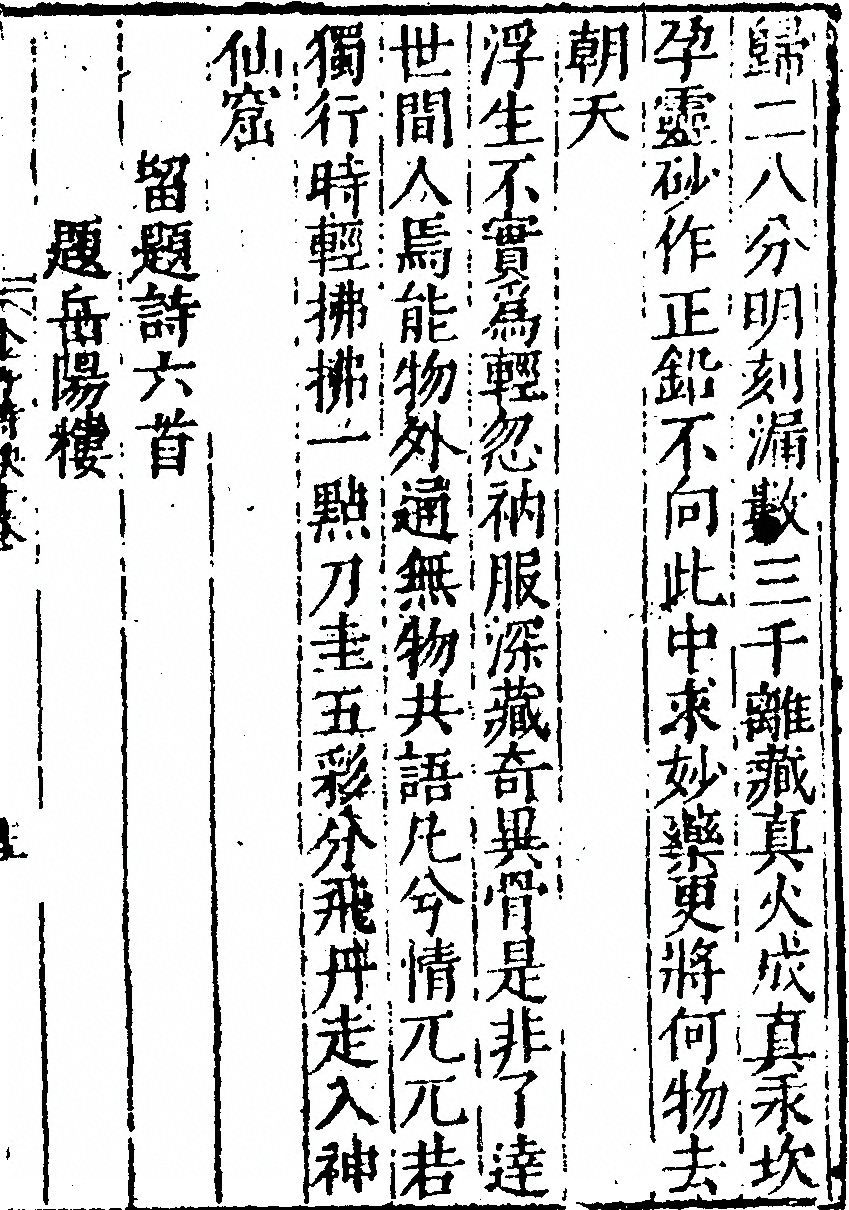 歸二八分明刻漏數三千離藏真火成真汞坎
孕靈砂作正鉛不向此中求妙藥更將何物去
朝天
浮生不實為輕忽衲服深藏奇異骨是非了達
世間人焉能物外通無物共語凡兮情兀兀若
獨行時輕拂拂一點刀圭五彩分飛丹走入神
仙窟
留題詩六首
題岳陽樓